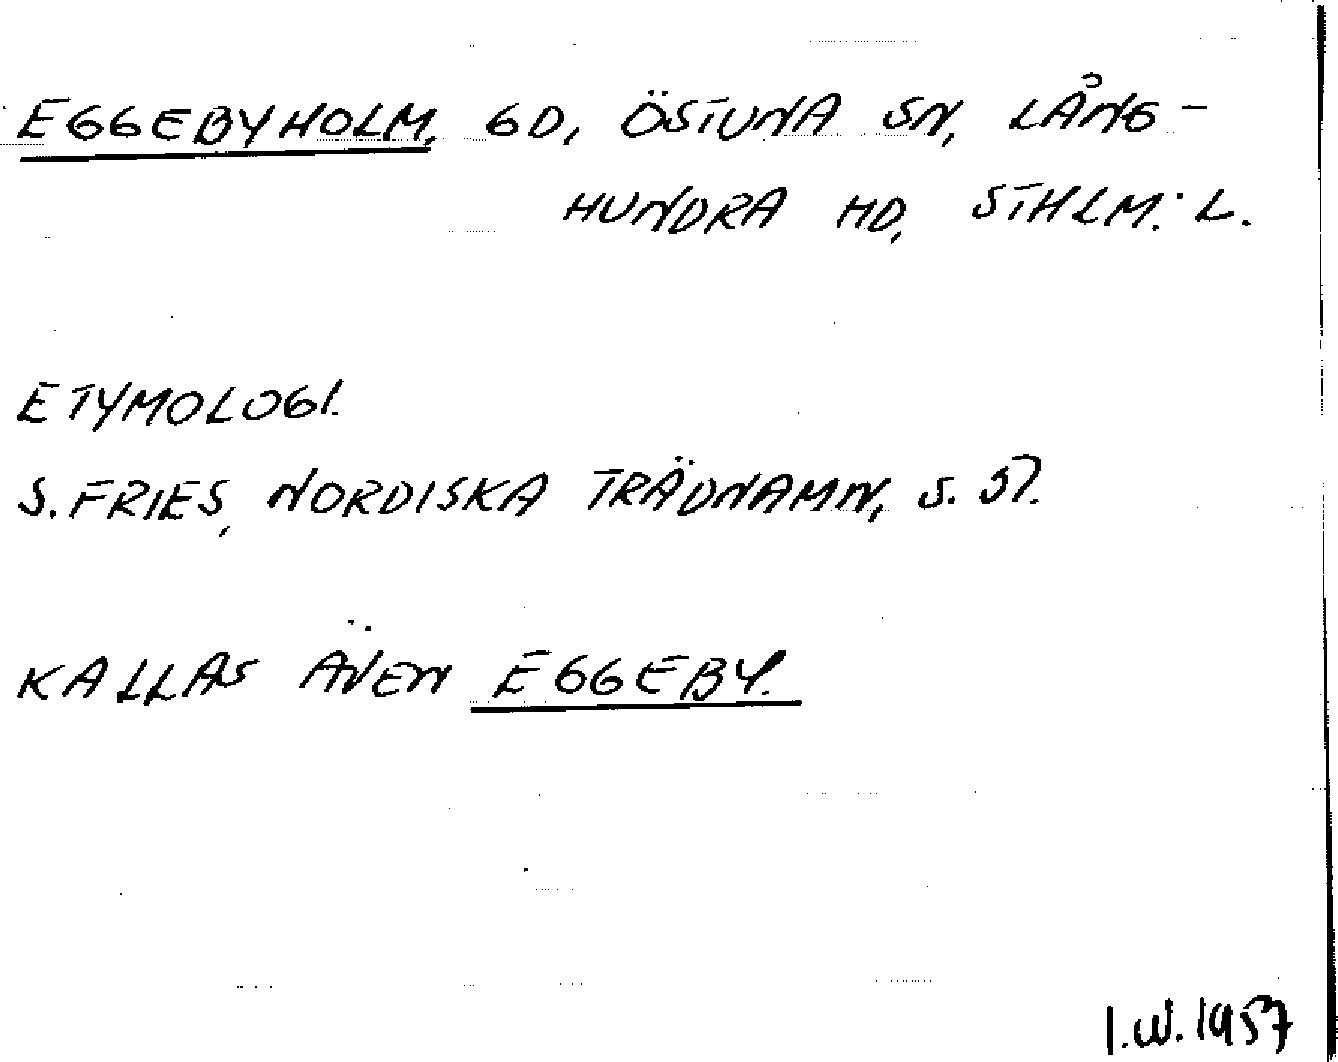 EGGEBYHOLM, GD, ÖSTUNA SN, LÅNG-
HUNDRA HD, STHLM:L.
ETYMOLOGI.
S. FRIES, NORDISKA TRÄDNAMN, S. 57.
KALLAS ÄVEN EGGEBY.
I.W. 1957